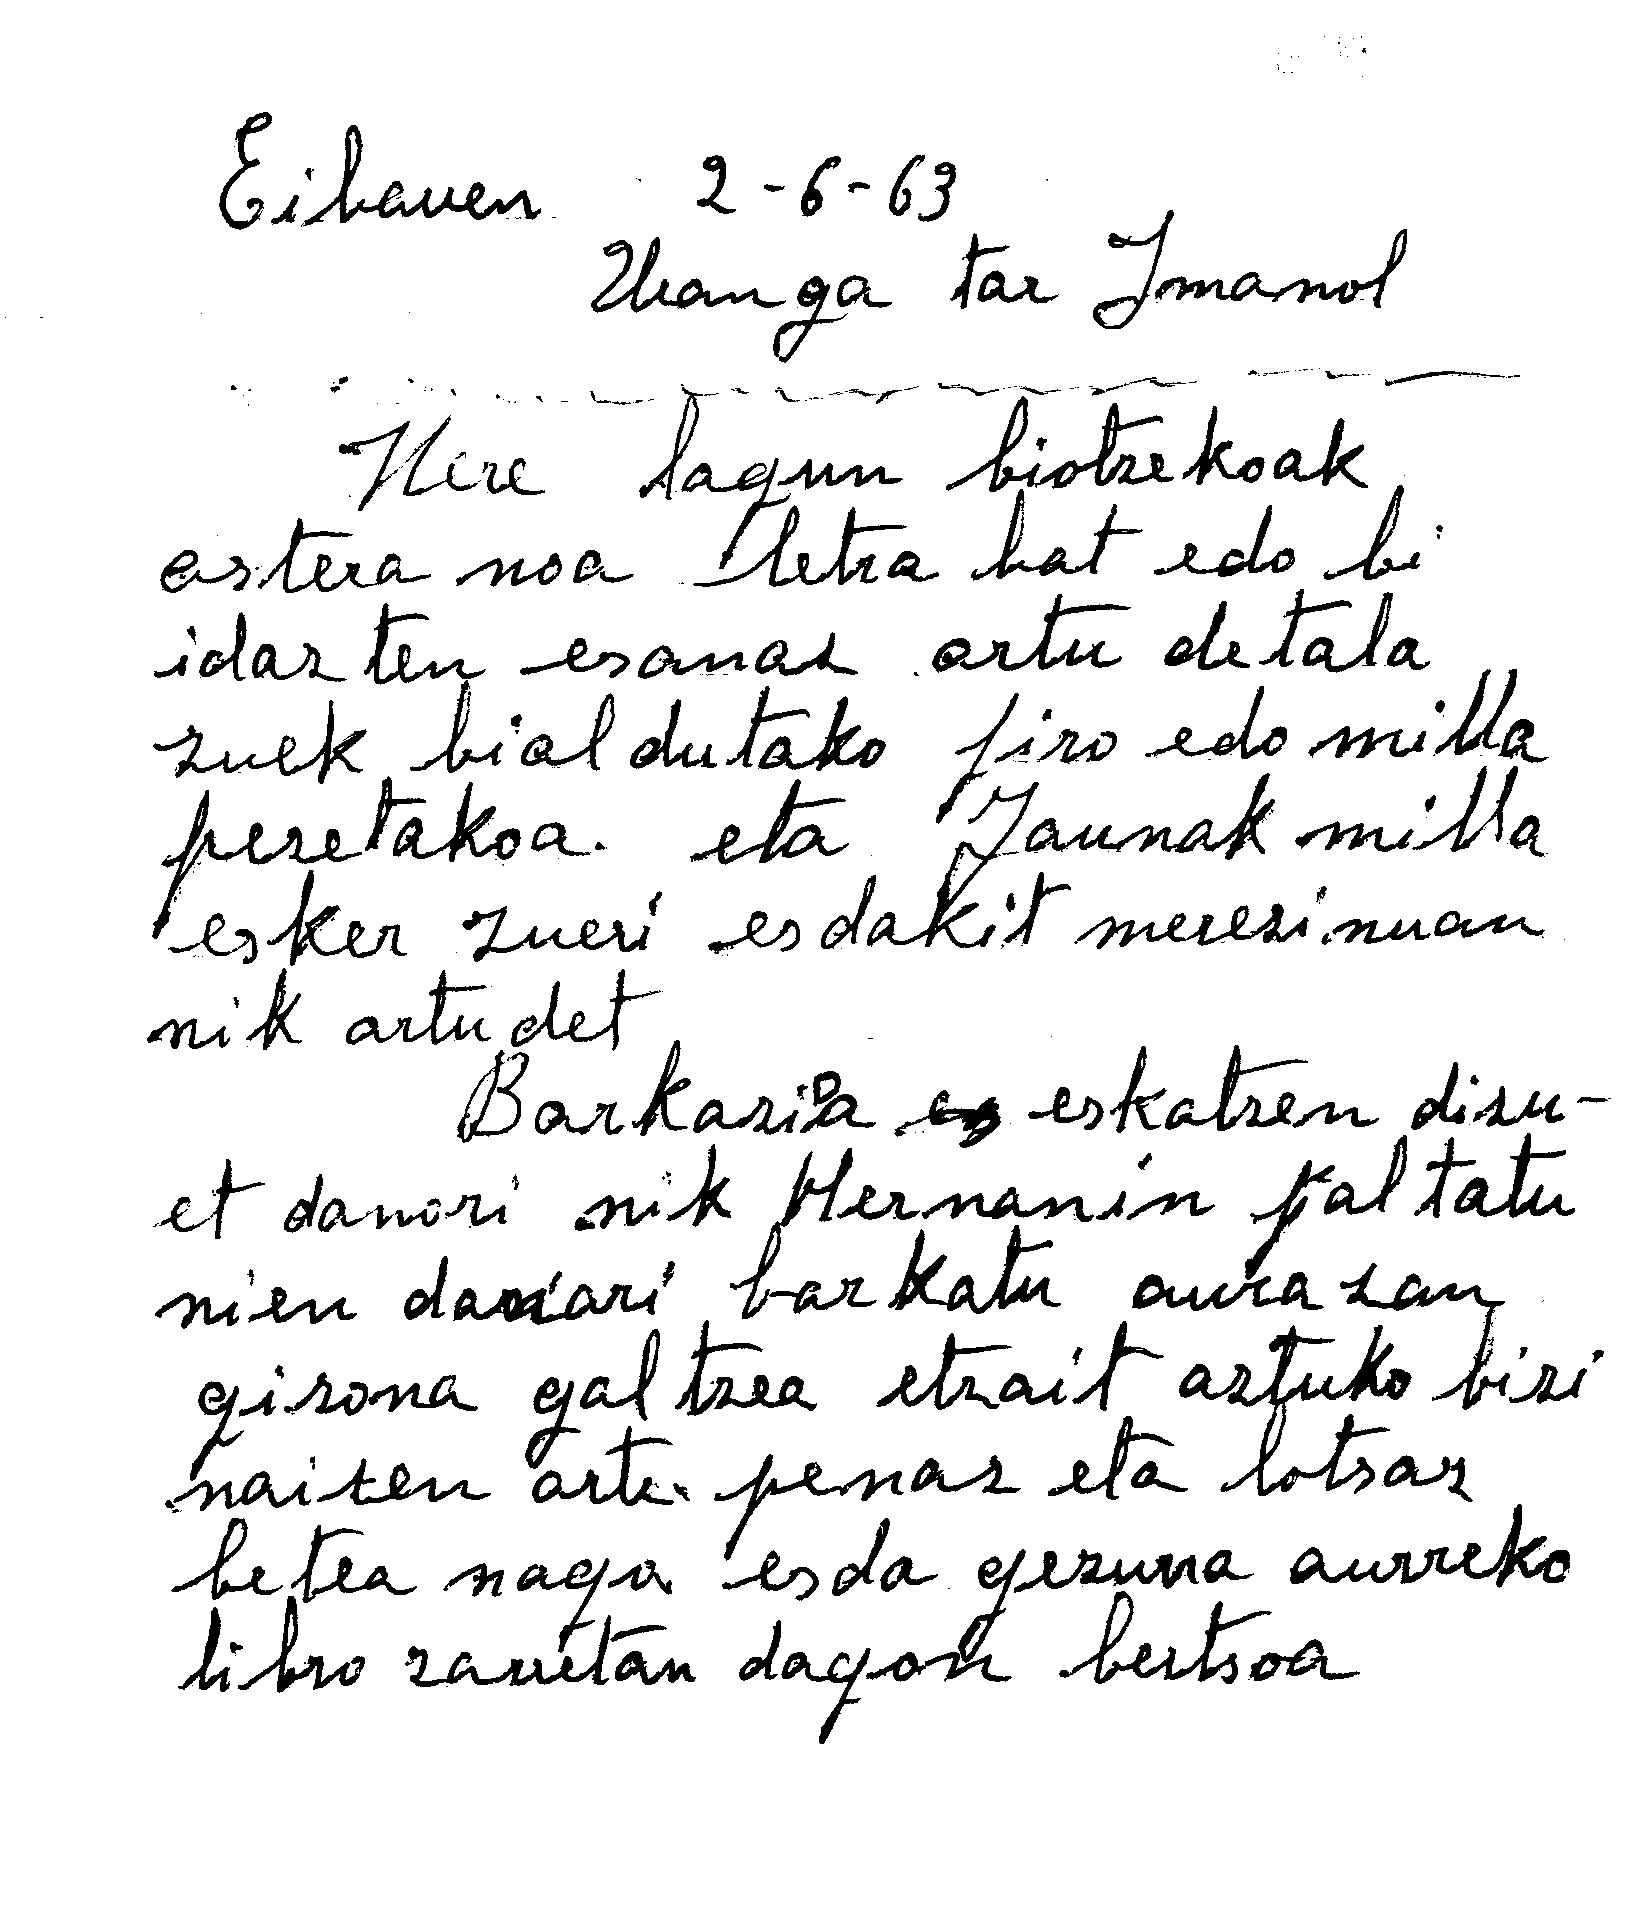 Eibarren 2-6-63
Uranga tar Imanol
Nere lagun biotzekoak
astera noa letra bat edo bi
idazten esanaz artu detala
zuek bialdutako jiro edo milla
pezetakoa. eta Jaunak milla
esker zueri esdakit merezi nuan
nik artu det
Barkazioa eskatzen dizu-
et danori nik Hernanin faltatu
nien danari barkatu aurrazan
gizona galtzea etzait aztuko bizi
naizen arte. penaz eta lotsaz
betea nago esda gezurra aurreko
libro zarretan dagon bertsoa